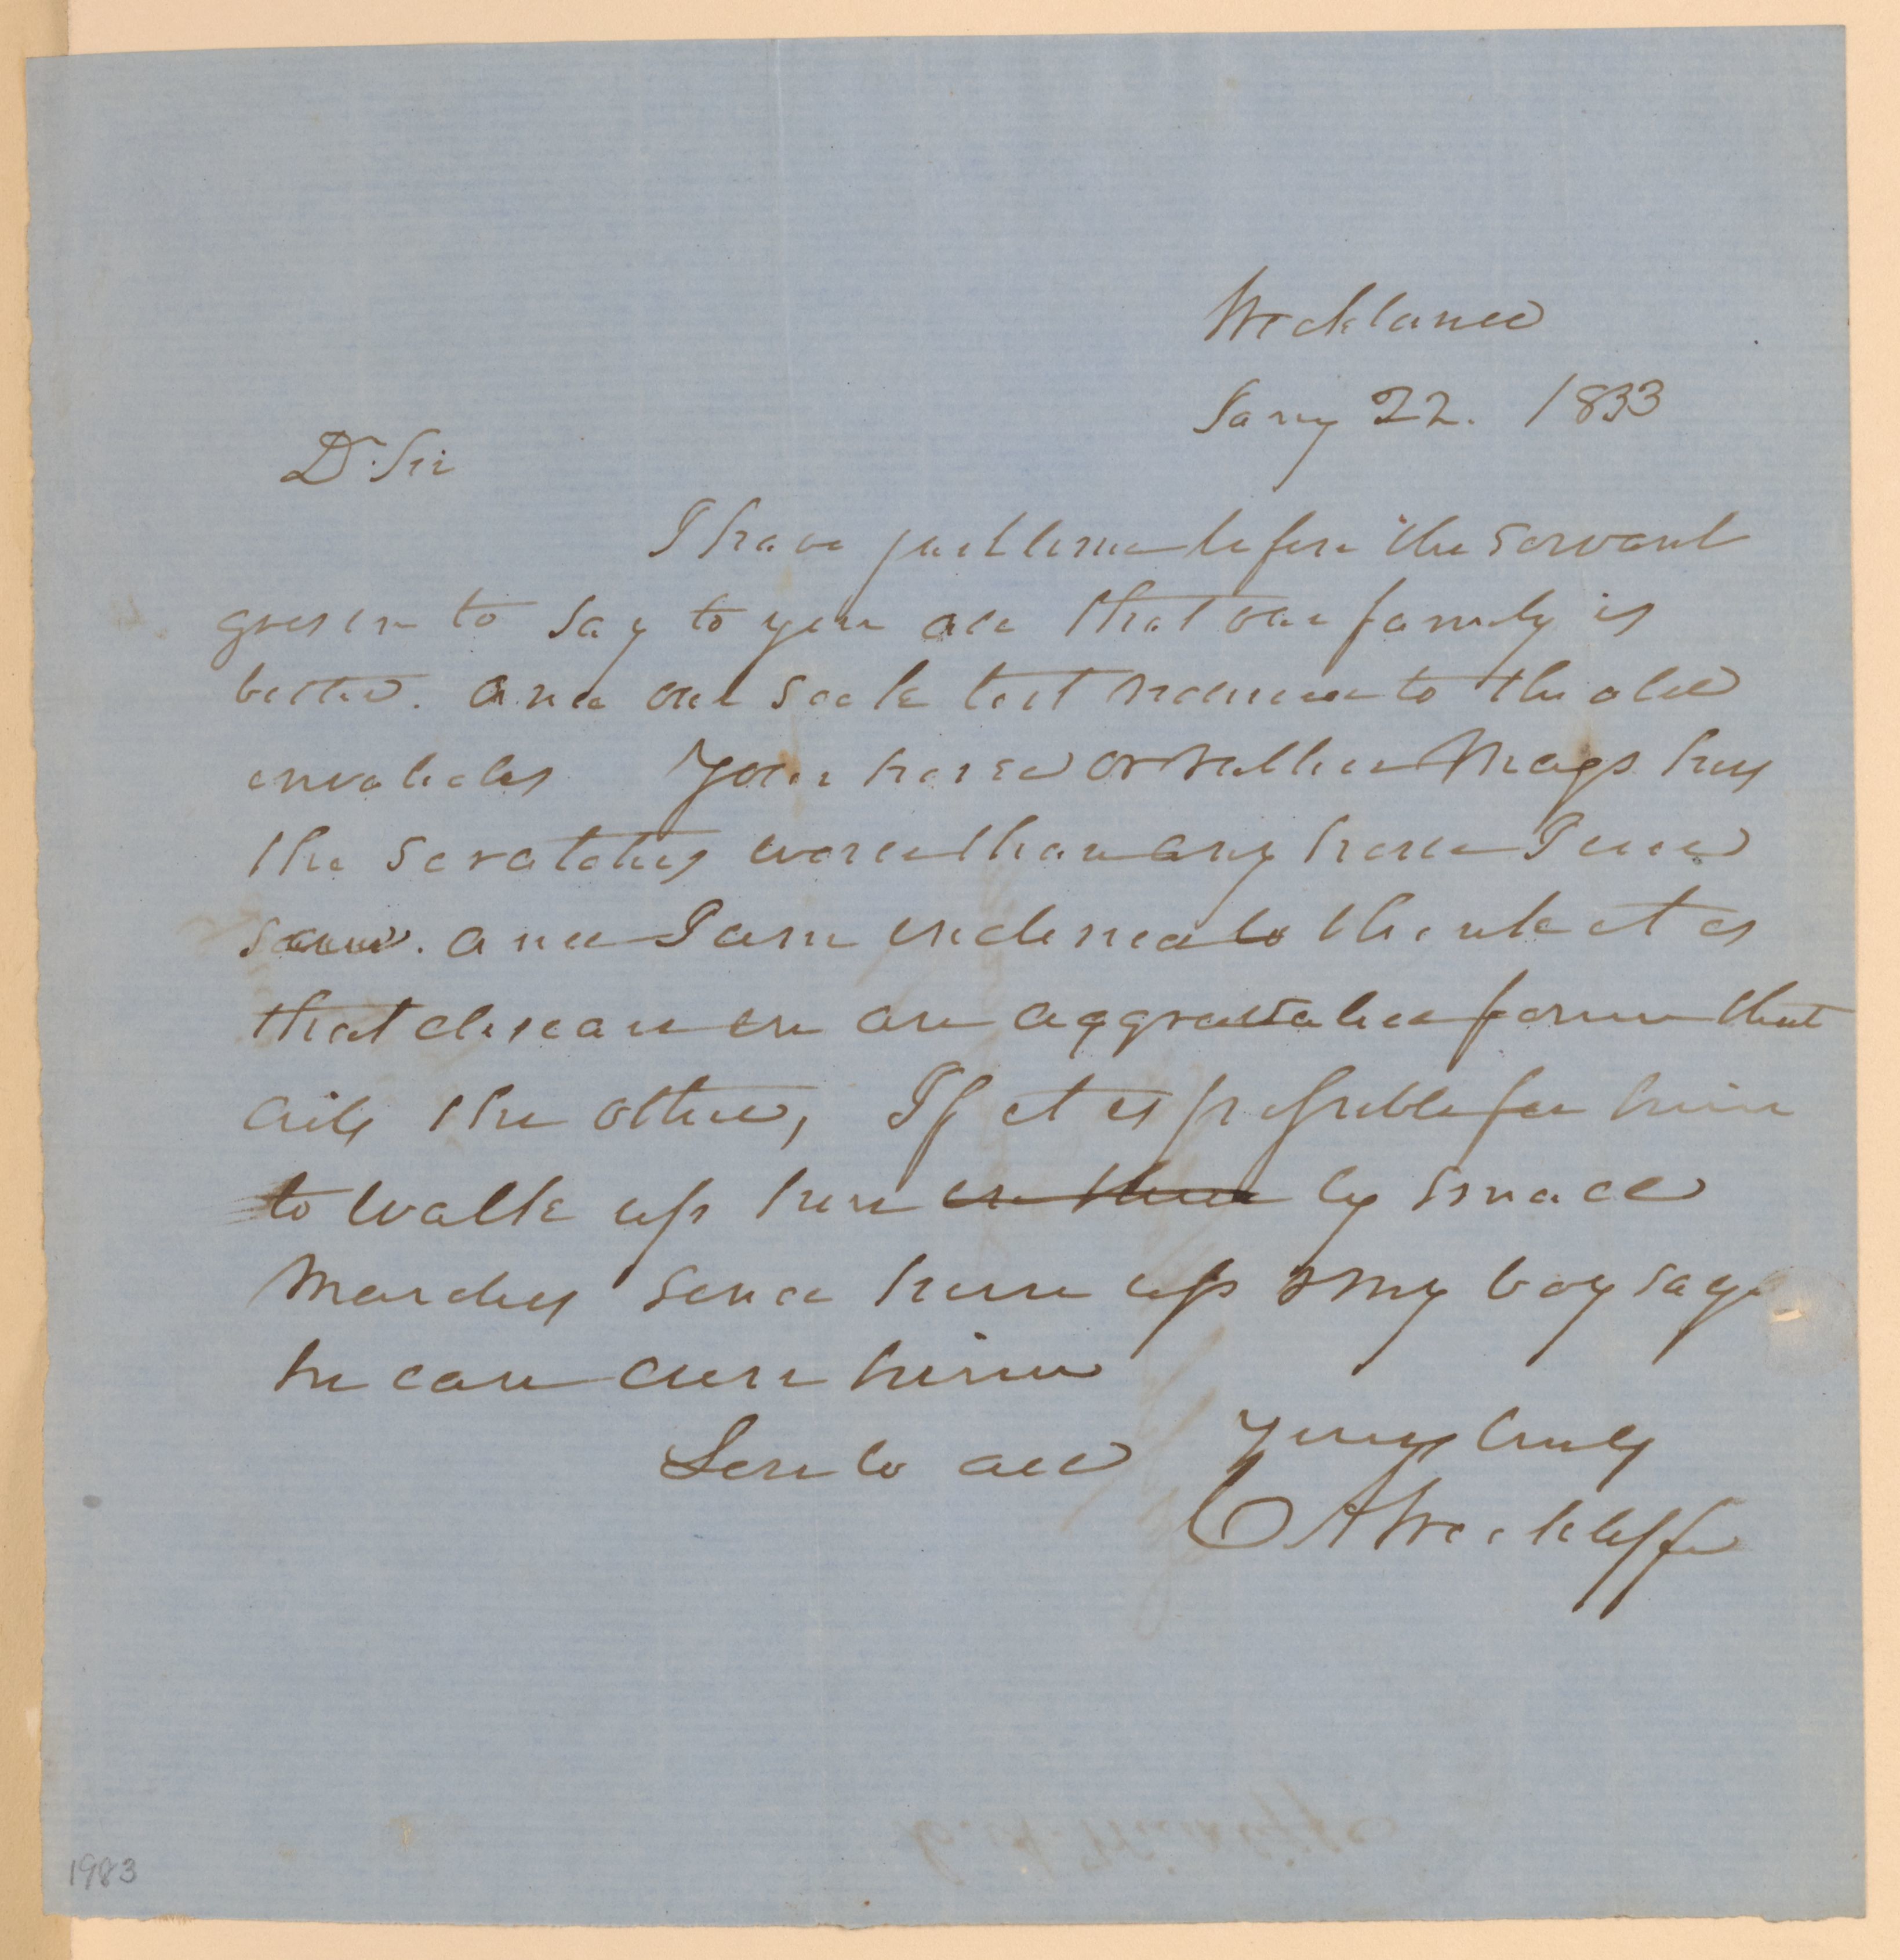 Wickland
Jany 22. 1833
Dr. Sir
I have just time before the servant
goes in to say to you all that our family is
better. and our sick list reduced to the old
invalids Your horse or rather Mags has
the scratches worse than any horse I ever
saw. and I am inclined to think it is
that disease in an aggravated form that
ails the other, If it is possible for him
to walk up here by
send him up my boy says
he can cure him
Love to all Yours truly
C A Wickliffe
C. A. Wickliffe
1983